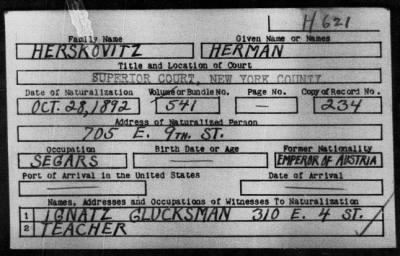 H 621
Family Name Given Name or Names
HERSKOVITZ HERMAN
Title and Location of Court
SUPERIOR COURT, NEW YORK COUNTY
Date of Naturalization Volume or Bundle No. Page No. Copy of Record No.
OCT. 28, 1892 541 — 234
Address of Naturalized Person
705 E. 9TH. ST.
Occupation Birth Date or Age Former Nationality
SEGARS — EMPEROR OF AUSTRIA
Port of Arrival in the United States Date of Arrival
— —
Names, Addresses and Occupations of Witnesses To Naturalization
1 IGNATZ GLUCKSMAN 310 E. 4 ST.
2 TEACHER